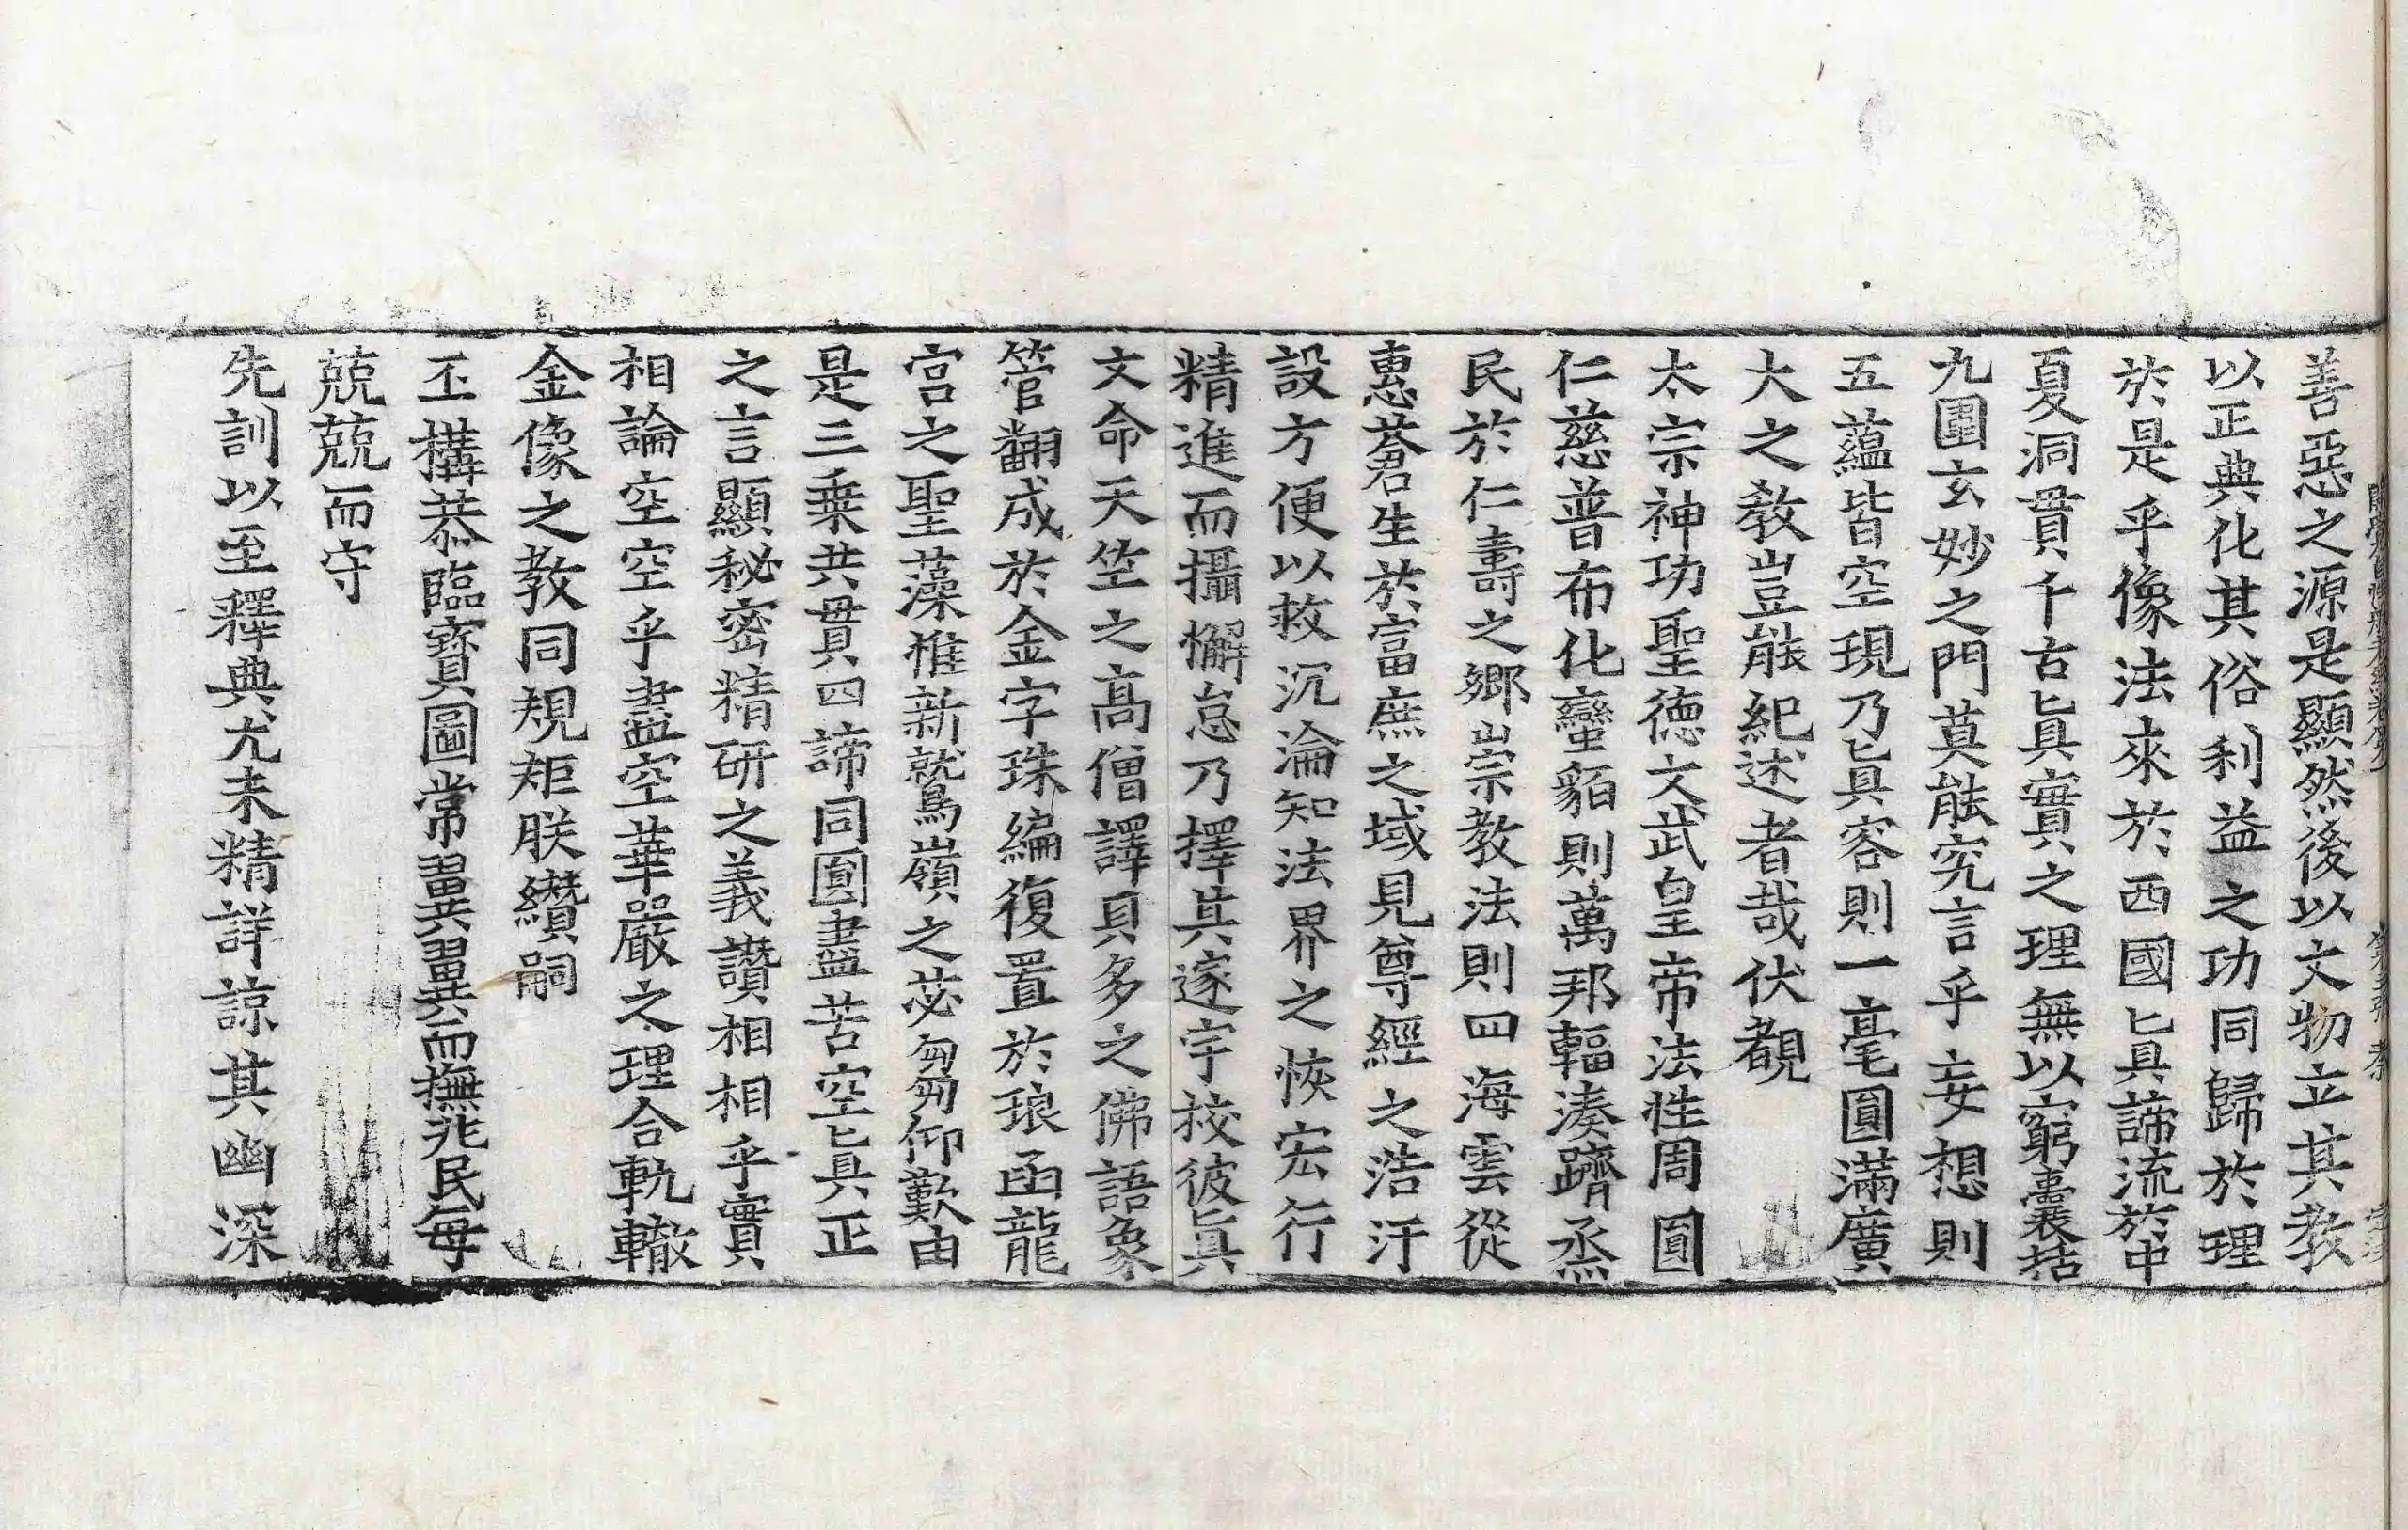 善惡之源是顯然後以文物立其教
以正典化其俗利益之功同歸於理
於是乎像法來於西國眞諦流於中
夏洞貫千古眞實之理無以窮囊括
九圍玄妙之門莫能究言乎妄想則
五蘊皆空現乃眞容則一毫圓滿廣
大之教豈能紀述者哉伏覩
太宗神功聖德文武皇帝法性周圓
仁慈普布化蠻貊則萬邦輻湊躋烝
民於仁壽之鄉崇教法則四海雲從
惠蒼生於富庶之域見尊經之浩汗
設方便以救沉淪知法界之恢宏行
精進而攝懈怠乃擇其邃宇校彼眞
文命天竺之高僧譯貝多之佛語象
管翻成於金字珠編復置於琅函龍
宮之聖藻惟新鷲嶺之苾芻仰歎由
是三乘共貫四諦同圓盡苦空眞正
之言顯秘密精研之義讚相相乎實
相論空空乎盡空華嚴之理合軌轍
金像之教同規矩朕纘嗣
丕搆恭臨寶圖常翼翼而撫兆民每
兢兢而守
先訓以至釋典尤未精詳諒其幽深